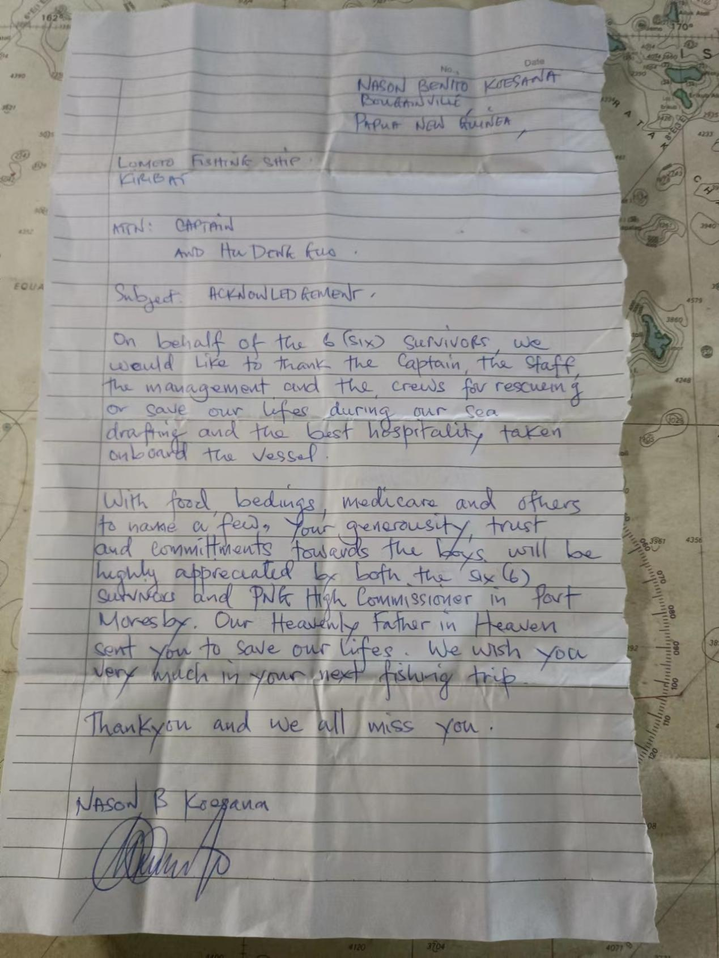 No. Date
NASON BENITO KOESANA
BOUGAINVILLE,
PAPUA NEW GUINEA,
LOMETO FISHING SHIP.
KIRIBAT
ATTN: CAPTAIN
AND HU DENG GUO.
Subject: ACKNOWLEDGEMENT.
On behalf of the 6 (six) survivors, we
would like to thank the Captain, the staff,
the management and the crews for rescueing
or save our lifes during our sea
drafting and the best hospitality taken
onboard the vessel.
With food, bedings, medicare and others
to name a few, Your generousity, trust
and committments towards the boys will be
highly appreciated by both the six (6)
survivors and PNG High Commissioner in Port
Moresby. Our Heavenly Father in Heaven
sent you to save our lifes. We wish you
very much in your next fishing trip.
Thankyou and we all miss you.
NASON B Koesana
162°
170°
EQUA
I S
RATAK
CH
4357
3860
4248
4356
4120
3704
4077
060
070
080
090
100
110
120